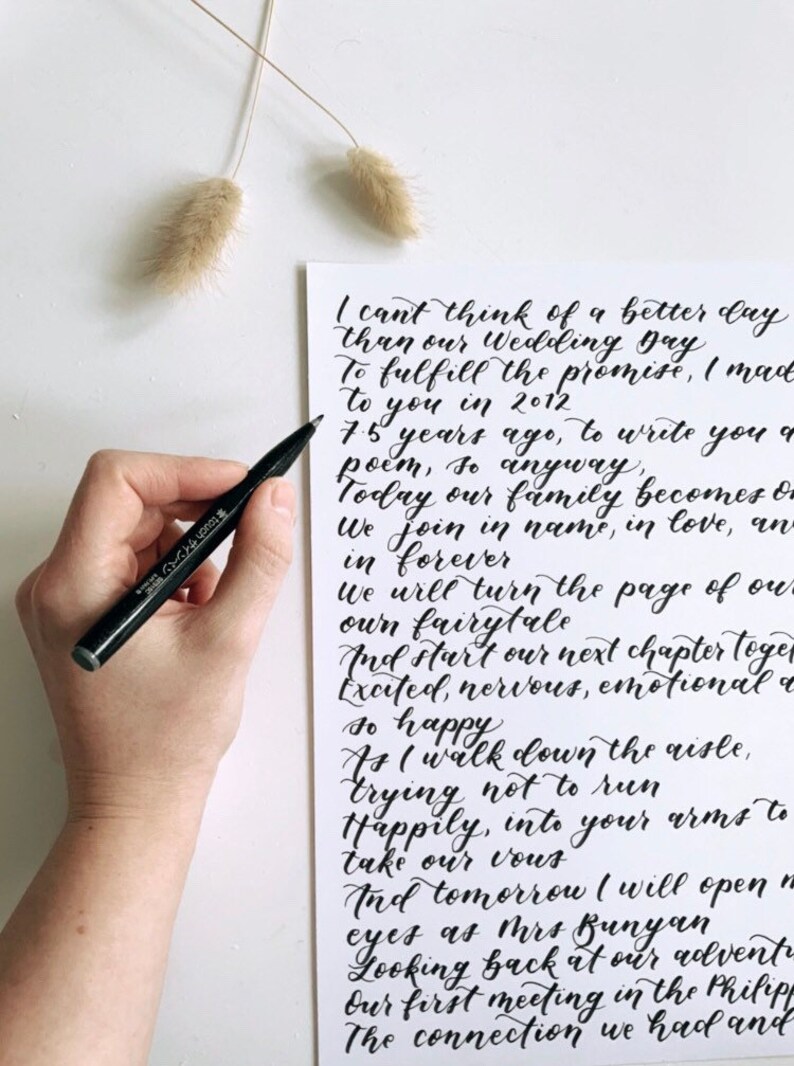 I can't think of a better day
than our Wedding Day
To fulfill the promise, I mad
to you in 2012
7.5 years ago, to write you a
poem, so anyway,
Today our family becomes on
We join in name, in love, an
in forever
We will turn the page of our
own fairytale
And start our next chapter toget
Excited, nervous, emotional a
so happy
As I walk down the aisle,
trying not to run
Happily, into your arms to
take our vows
And tomorrow I will open m
eyes as Mrs Bunyan
Looking back at our adventu
Our first meeting in the Philipp
The connection we had and
筆touch サインペン